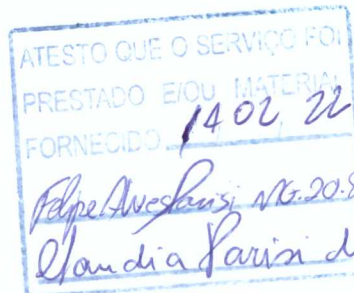 ATESTO QUE O SERVIÇO FOI
PRESTADO E/OU MATERIAL
FORNECIDO 14 02 22
Felipe Alves Parisi MG.20.8
Claudia Parisi d